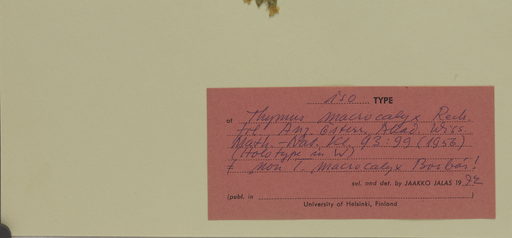 iso TYPE
of Thymus macrocalyx Rech.
fil. Anz. Österr. Akad. Wiss.
Math.-Nat. Kl. 93:99 (1956)
(Holotype in W)
≠ non T. macrocalyx Borbás!
sel. and det. by JAAKKO JALAS 1972
(publ. in )
University of Helsinki, Finland